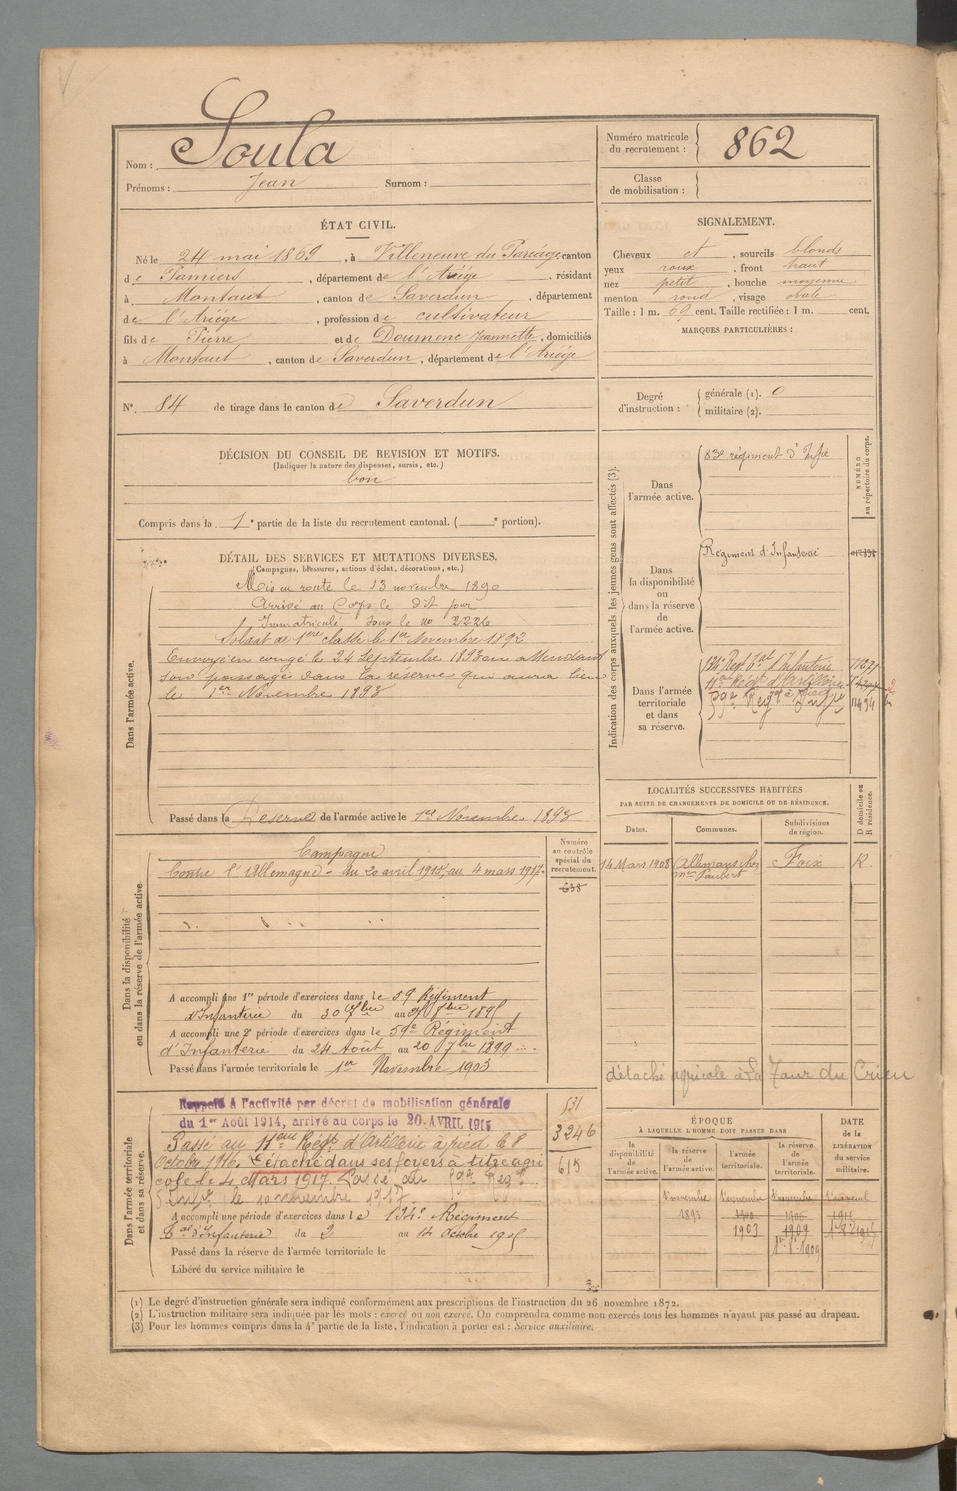 Nom : Soula
Prénoms : Jean Surnom :
Numéro matricule
du recrutement : 862
Classe
de mobilisation :
ÉTAT CIVIL.
Né le 24 mai 1869, à Villeneuve du Paréage canton
de Pamiers, département de l'Ariége, résidant
à Montaut, canton de Saverdun, département
de l'Ariége, profession de cultivateur
fils de Pierre et de Doumenc Jeannette, domiciliés
à Montaut, canton de Saverdun, département de l'Ariége
SIGNALEMENT.
Cheveux et, sourcils blonds
yeux roux, front haut
nez petit, bouche moyenne
menton rond, visage ovale
Taille : 1 m. 69 cent. Taille rectifiée : 1 m. cent.
MARQUES PARTICULIÈRES :
N° 84 de tirage dans le canton de Saverdun
Degré
d'instruction :
générale (1). 0
militaire (2).
DÉCISION DU CONSEIL DE REVISION ET MOTIFS.
(Indiquer la nature des dispenses, sursis, etc.)
bon
Compris dans la 1e partie de la liste du recrutement cantonal. ( e portion).
DÉTAIL DES SERVICES ET MUTATIONS DIVERSES.
(Campagnes, blessures, actions d'éclat, décorations, etc.)
Dans l'armée active.
Mis en route le 13 novembre 1890
Arrivé au Corps le dit jour
Immatriculé sous le no 2226
Soldat de 1ere classe le 1er Novembre 1892
Envoyé en congé le 24 Septembre 1893 en attendant
son passage dans la réserve qui aura lieu
le 1er Novembre 1893
Passé dans la Réserve de l'armée active le 1er Novembre 1893
Indication des corps auxquels les jeunes gens sont affectés (3).
NUMÉRO
au répertoire du corps.
Dans
l'armée active.
83e régiment d'Infie
Dans
la disponibilité
ou
dans la réserve
de
l'armée active.
Régiment d'Infanterie
Dans l'armée
territoriale
et dans
sa réserve.
134e Regt Tal d'Infanterie
11eme Régt d'Artillerie
59e Reg
LOCALITÉS SUCCESSIVES HABITÉES
PAR SUITE DE CHANGEMENTS DE DOMICILE OU DE RÉSIDENCE.
Dates. Communes. Subdivisions
de région.
D domicile ou
R résidence.
14 Mars 1908 Allemans chez Foix R.
détaché agricole à La Tour du Crieu
Dans la disponibilité
ou dans la réserve de l'armée active
Numéro
au contrôle
spécial du
recrutement.
638
Campagne
Contre l'Allemagne - du 20 avril 1915, au 4 mars 1917.
A accompli une 1re période d'exercices dans le 59 Régiment
d'Infanterie du 30 7bre au 8bre 1895
A accompli une 2e période d'exercices dans le 59e Régiment
d'Infanterie du 24 Août au 20 7bre 1899
Passé dans l'armée territoriale le 1er Novembre 1903
Dans l'armée territoriale
et dans sa réserve.
Rappelé à l'activité par décret de mobilisation générale
du 1er Août 1914, arrivé au corps le 20 AVRIL 1915
Passé au 11eme Régt d'Artillerie à pied le 8
Octobre 1916. Détaché dans ses foyers à titre agri
cole le 4 Mars 1917. Passé au 59e Regt
le 10 novembre 1917.
A accompli une période d'exercices dans le 134e Régiment
Tal d'Infanterie du 2 au 14 Octobre 1905
Passé dans la réserve de l'armée territoriale le
Libéré du service militaire le
531
3246
615
ÉPOQUE
À LAQUELLE L'HOMME DOIT PASSER DANS
la
disponibilité
de
l'armée active.
la
réserve de
l'armée active.
l'armée
territoriale.
la réserve
de
l'armée
territoriale.
DATE
de la
LIBÉRATION
du service
militaire.
1er novembre 1er novembre 1er novembre
1893 1900 1906
1903 1909
(1) Le degré d'instruction générale sera indiqué conformément aux prescriptions de l'instruction du 26 novembre 1872.
(2) L'instruction militaire sera indiquée par les mots : exercé ou non exercé. On comprendra comme non exercés tous les hommes n'ayant pas passé au drapeau.
(3) Pour les hommes compris dans la 4e partie de la liste, l'indication à porter est : Service auxiliaire.